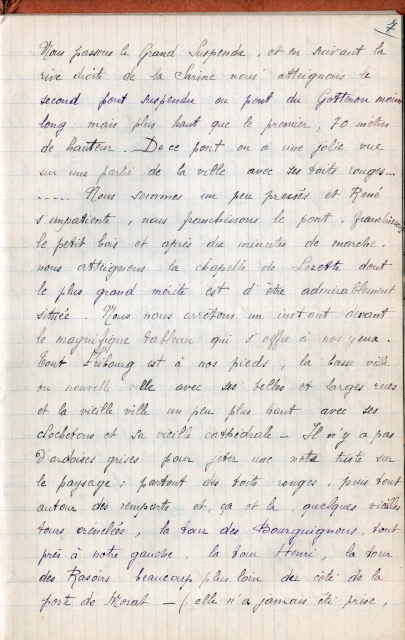 7
Nous passons le Grand Suspendu, et en suivant la
rive droite de la Sarine nous atteignons le
second pont suspendu ou pont du Gotteron moins
long mais plus haut que le premier, 70 mètres
de hauteur. De ce pont on a une jolie vue
sur une partie de la ville avec ses toits rouges...
..... Nous sommes un peu pressés et René
s'impatiente, nous franchissons le pont, franchissons
le petit bois et après dix minutes de marche,
nous atteignons la chapelle de Lorette dont
le plus grand mérite est d'être admirablement
située. Nous nous arrêtons un instant devant
le magnifique tableau qui s'offre à nos yeux.
Tout Fribourg est à nos pieds, la basse ville
ou nouvelle ville avec ses belles et larges rues
et la vieille ville un peu plus haut avec ses
clochetons et sa vieille cathédrale - Il n'y a pas
d'ardoises grises pour jeter une note triste sur
le paysage; partout des toits rouges, puis tout
autour des remparts et, ça et là, quelques vieilles
tours crénelées, la tour des Bourguignons, tout
près à notre gauche, la tour Henri, la tour
des Rasoirs beaucoup plus loin du côté de la
porte de Morat - (elle n'a jamais été prise,